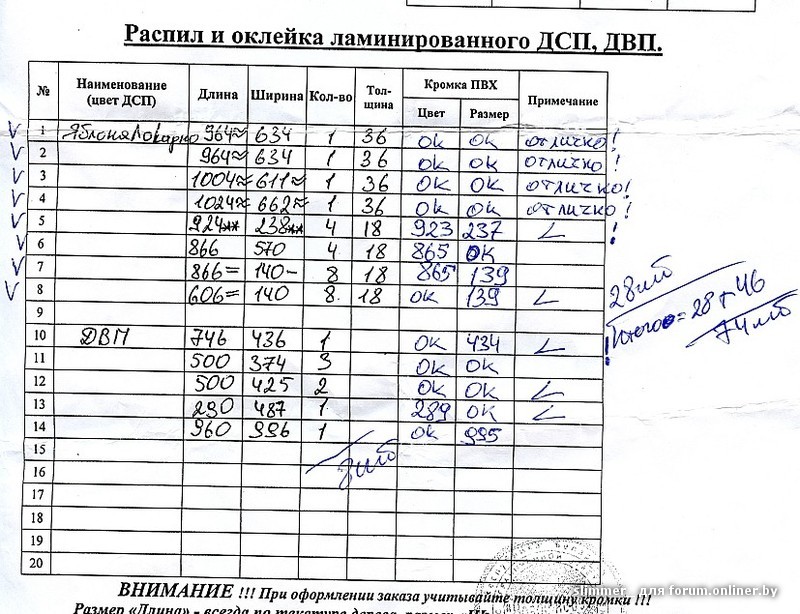 Распил и оклейка ламинированного ДСП, ДВП.
№ Наименование (цвет ДСП) Длина Ширина Кол-во Тол-щина Кромка ПВХ Примечание
Цвет Размер
1 Яблоня Локарно 964≈ 634 1 36 ОК ОК отлично!
2 964≈ 634 1 36 ОК ОК отлично!
3 1004≈ 611≈ 1 36 ОК ОК отлично!
4 1024≈ 662≈ 1 36 ОК ОК отлично!
5 924** 238** 4 18 923 237 !
6 866 570 4 18 865 ОК
7 866= 140- 8 18 865 139
8 606= 140 8 18 ОК 139
9
28 шт
Итого = 28 + 46
74 шт
10 ДВП 746 436 1 ОК 434 !
11 500 374 3 ОК ОК
12 500 425 2 ОК ОК
13 290 487 1 289 ОК
14 960 996 1 ОК 995
15
16
17
18
19
20
ВНИМАНИЕ !!! При оформлении заказа учитывайте толщину кромки !!!
Размер «Длина» - всегда по текстуре дерева, размер
Slimmer_ для forum.onliner.by